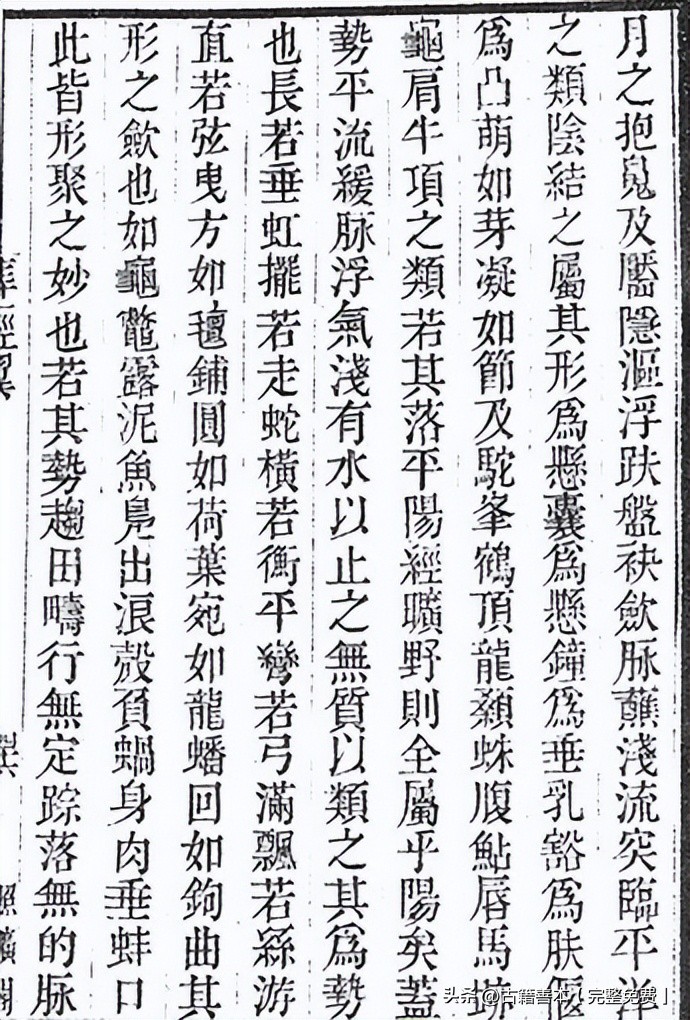 月之抱鬼及靨隱漚浮趺盤袂斂脉蘸淺流突臨平洋
之類陰結之屬其形爲懸囊爲懸鐘爲垂乳豁爲肤偃
爲凸萌如芽凝如節及駝峯鶴頂龍顙蛛腹鮎唇馬跡
龜肩牛項之類若其落平陽經曠野則全屬乎陽矣蓋
勢平流緩脉浮氣淺有水以止之無質以類之其爲勢
也長若垂虹擺若走蛇橫若衡平彎若弓滿飄若絲游
直若弦曳方如氊鋪圓如荷葉宛如龍蟠回如鉤曲其
形之斂也如龜鼈露泥魚鳧出浪殼負蝸身肉垂蚌口
此皆形聚之妙也若其勢趨田疇行無定踪落無的脈
葬經翼
照曠閣
头条@古籍善本(完整免费)